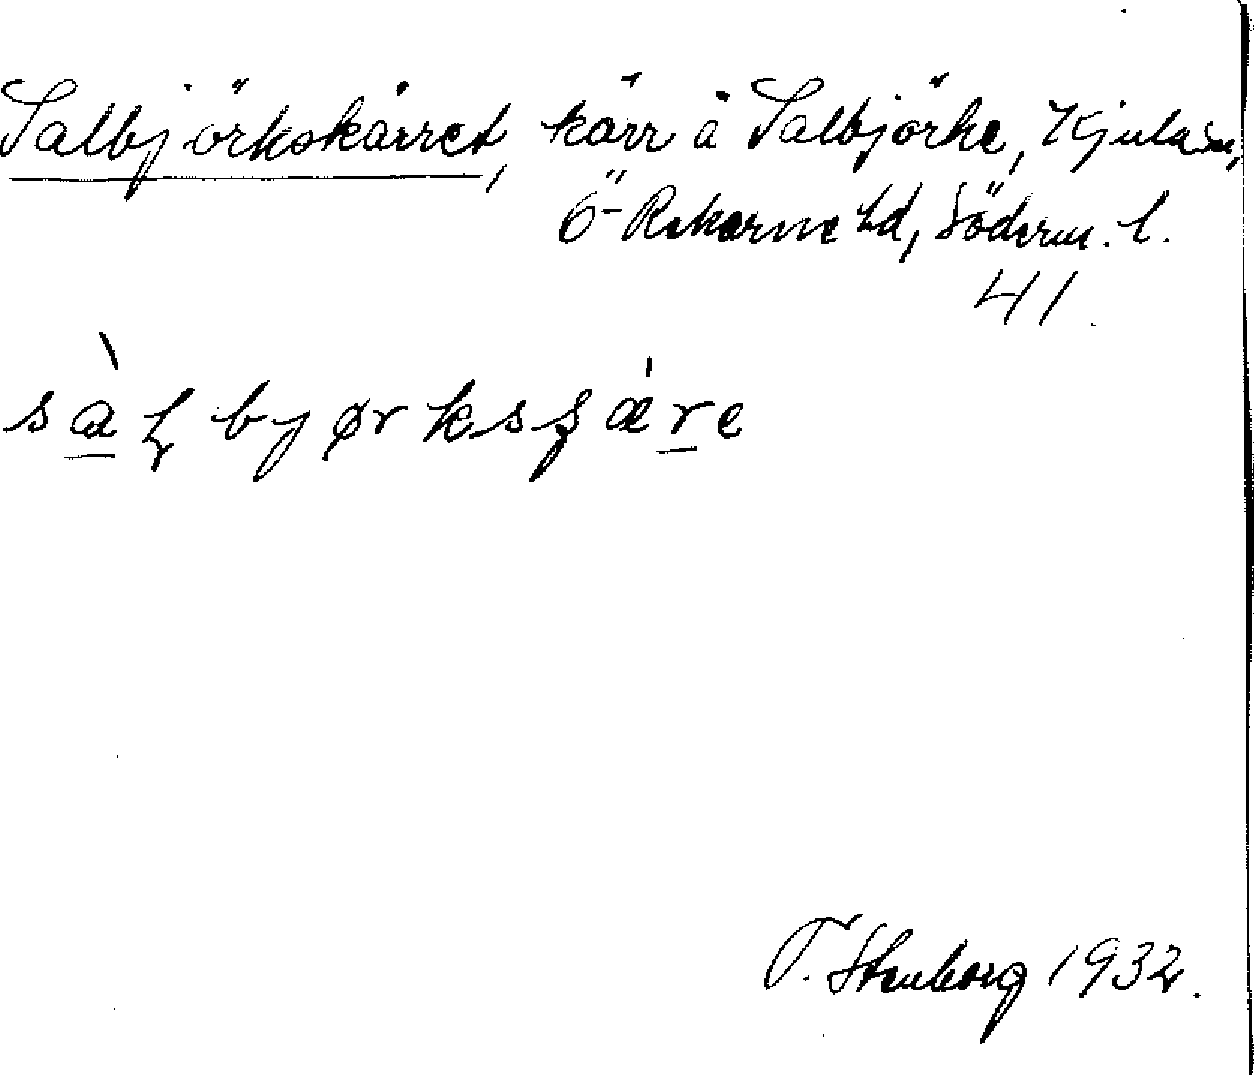 Salbjörkskärret, kärr å Salbjörke, Kjula sn,
Ö-Rekarne hd, Söderm. l.
41.
sàlbjørksʂǽre
T. Stenborg 1932.